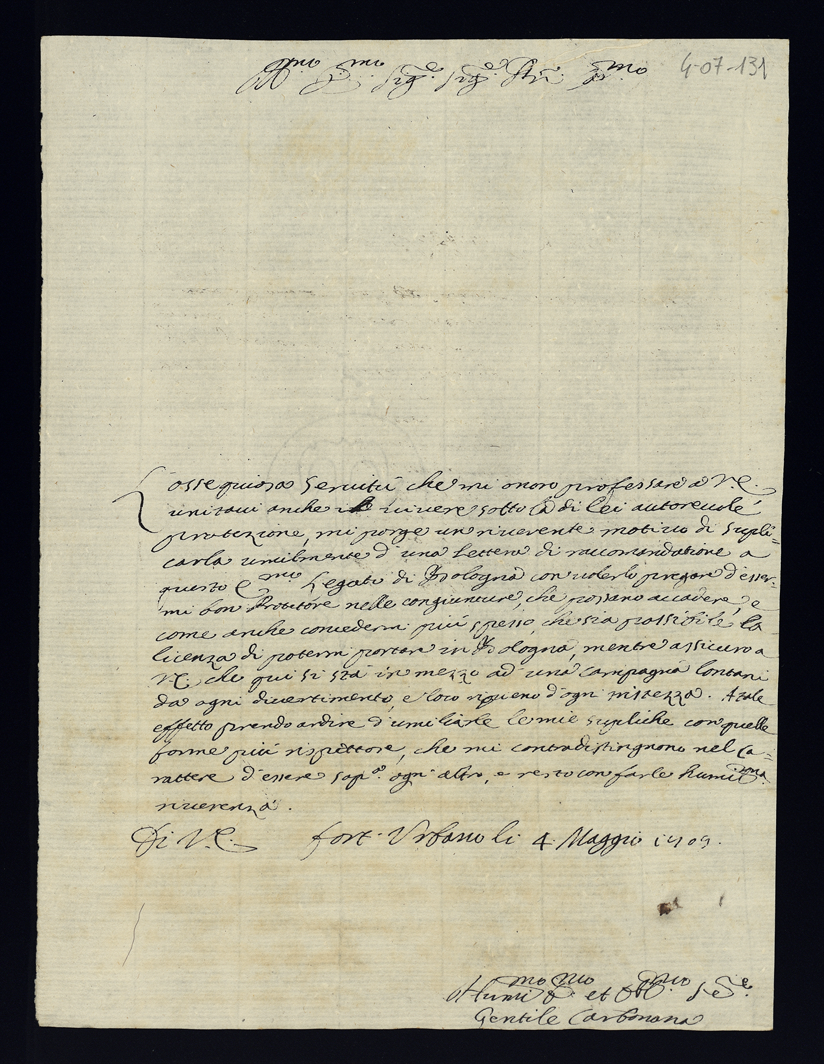 Ill.mo Sig.e Sig.e P.ron
4-07-131
L'ossequiosa servitù che mi onoro professare a V.E.
unitavi anche il vivere sotto la di lei autorevole
protezione, mi porge un riverente motivo di supli=
carla umilmente d'una lettera di raccomandatione a
questo E.mo Legato di Bologna con volerlo pregare d'esser=
mi bon Protetore nelle congiunture, che possano accadere, e
come anche concedermi più spesso, che sia possibile la
licenza di potermi portare in Bologna, mentre assicuro a
V.E. che qui si stà in mezzo ad una campagna lontani
da ogni divertimento, e loco ripieno d'ogni tristezza. A tale
effetto prendo ardire d'umiliarle le mie supliche con quelle
forme più rispettose, che mi contradistinguono nel Ca=
rattere d'essere sop.a ogn'altro, e resto con farle humil.ma
riverenza.
Di V.E. Fort'Urbano li 4 Maggio 1709.
Humil.mo et Obl.mo S.re
Gentile Carbonana